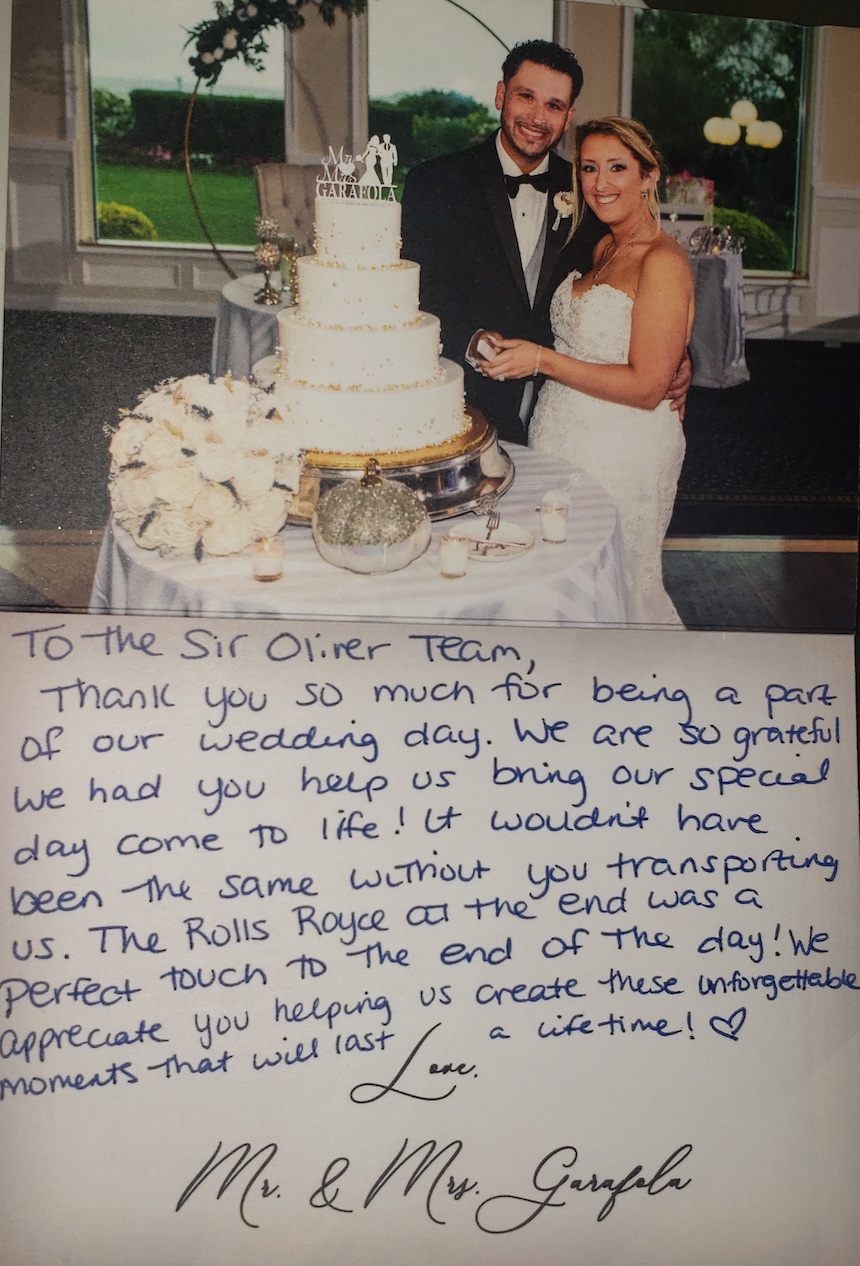 Mr
&
Mrs
GARAFOLA
To the Sir Oliver Team,
Thank you so much for being a part
of our wedding day. We are so grateful
we had you help us bring our special
day come to life! It wouldn't have
been the same without you transporting
us. The Rolls Royce at the end was a
perfect touch to the end of the day! We
appreciate you helping us create these unforgettable
moments that will last a lifetime! ♡
Love,
Mr. & Mrs. Garafola